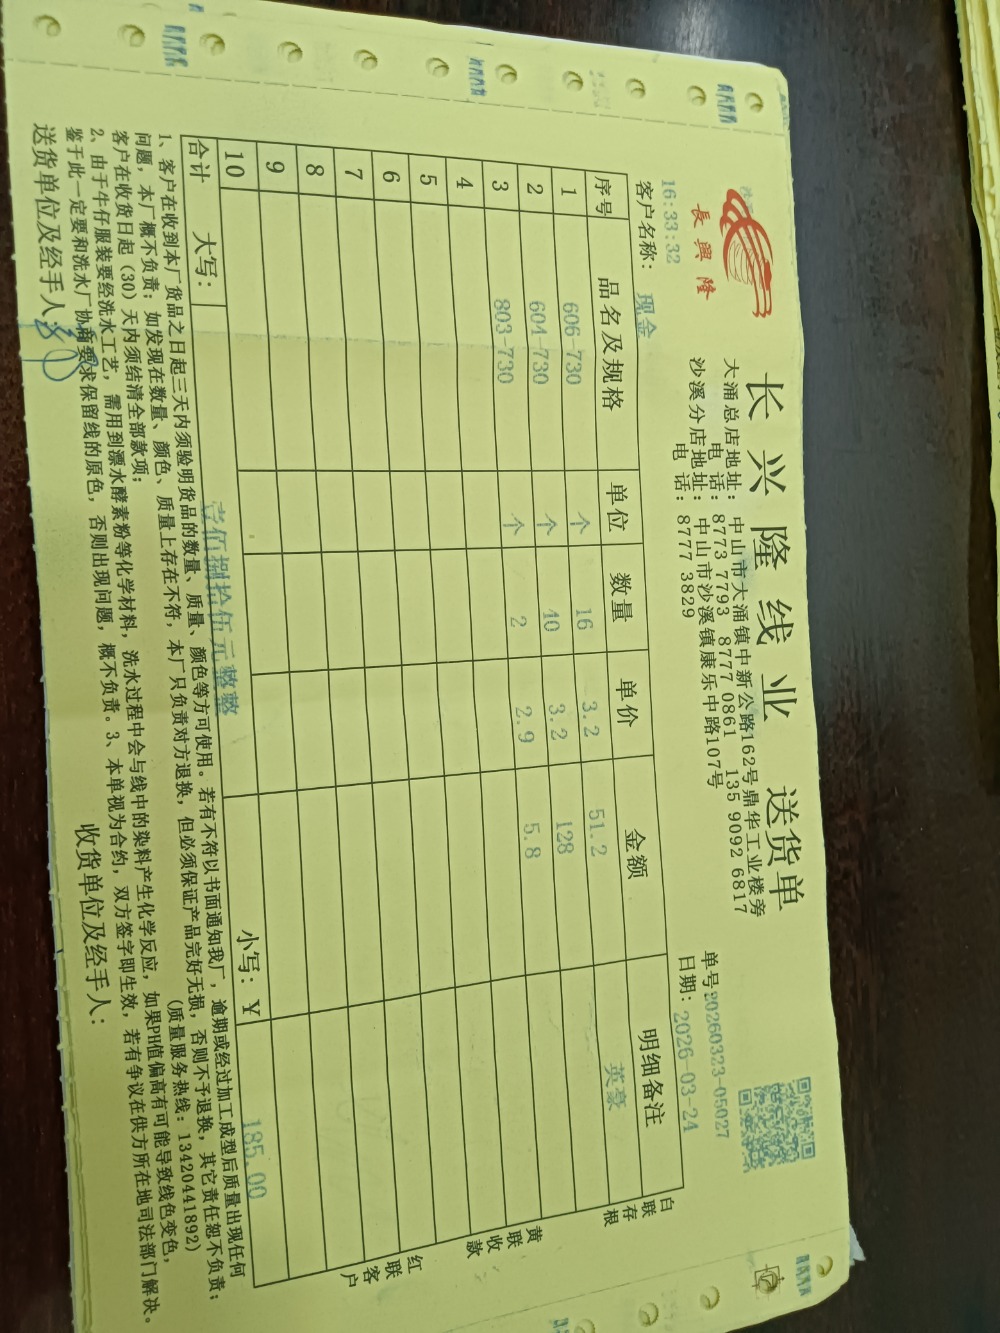 長興隆
长兴隆线业 送货单
大涌总店地址: 中山市大涌镇中新公路162号鼎华工业楼旁
电 话: 8773 7793 8777 0861 135 9092 6817
沙溪分店地址: 中山市沙溪镇康乐中路107号
电 话: 8777 3829
单号20260323-05027
日期: 2026-03-24
16:33:32
客户名称: 现金
序号 品名及规格 单位 数量 单价 金额 明细备注
1 606-730 个 16 3.2 51.2 英豪
2 604-730 个 40 3.2 128
3 803-730 个 2 2.9 5.8
4
5
6
7
8
9
10
合计 大写: 壹佰捌拾伍元整整 小写: ¥ 185.00
白联存根
黄联收款
红联客户
1、客户在收到本厂货品之日起三天内须验明货品的数量、质量、颜色等方可使用。若有不符以书面通知我厂, 逾期或经过加工成型后质量出现任何
问题, 本厂概不负责; 如发现在数量、颜色、质量上存在不符, 本厂只负责对方退换, 但必须保证产品完好无损, 否则不予退换, 其它责任恕不负责;
客户在收货日起 (30) 天内须结清全部款项; (质量服务热线: 13420441892)
2、由于牛仔服装要经洗水工艺, 需用到漂水酵素粉等化学材料, 洗水过程中会与线中的染料产生化学反应, 如果PH值偏高有可能导致线色变色,
鉴于此一定要和洗水厂协商要求保留线的原色, 否则出现问题, 概不负责。3、本单视为合约, 双方签字即生效, 若有争议在供方所在地司法部门解决。
送货单位及经手人: 收货单位及经手人: